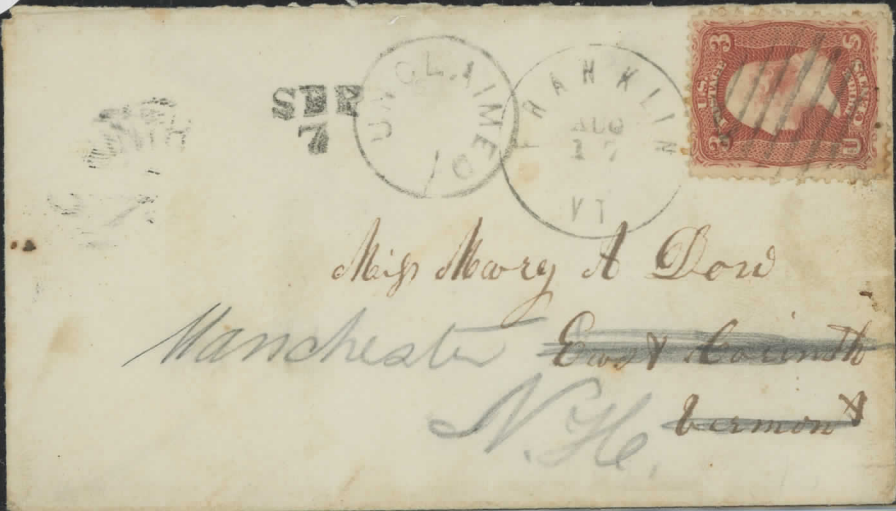 SEP
7
UNCLAIMED
FRANKLIN
AUG
17
VT
3 U.S. 3
POSTAGE
Miss Mary A Dow
Manchester East Corinth
N.H. Vermont